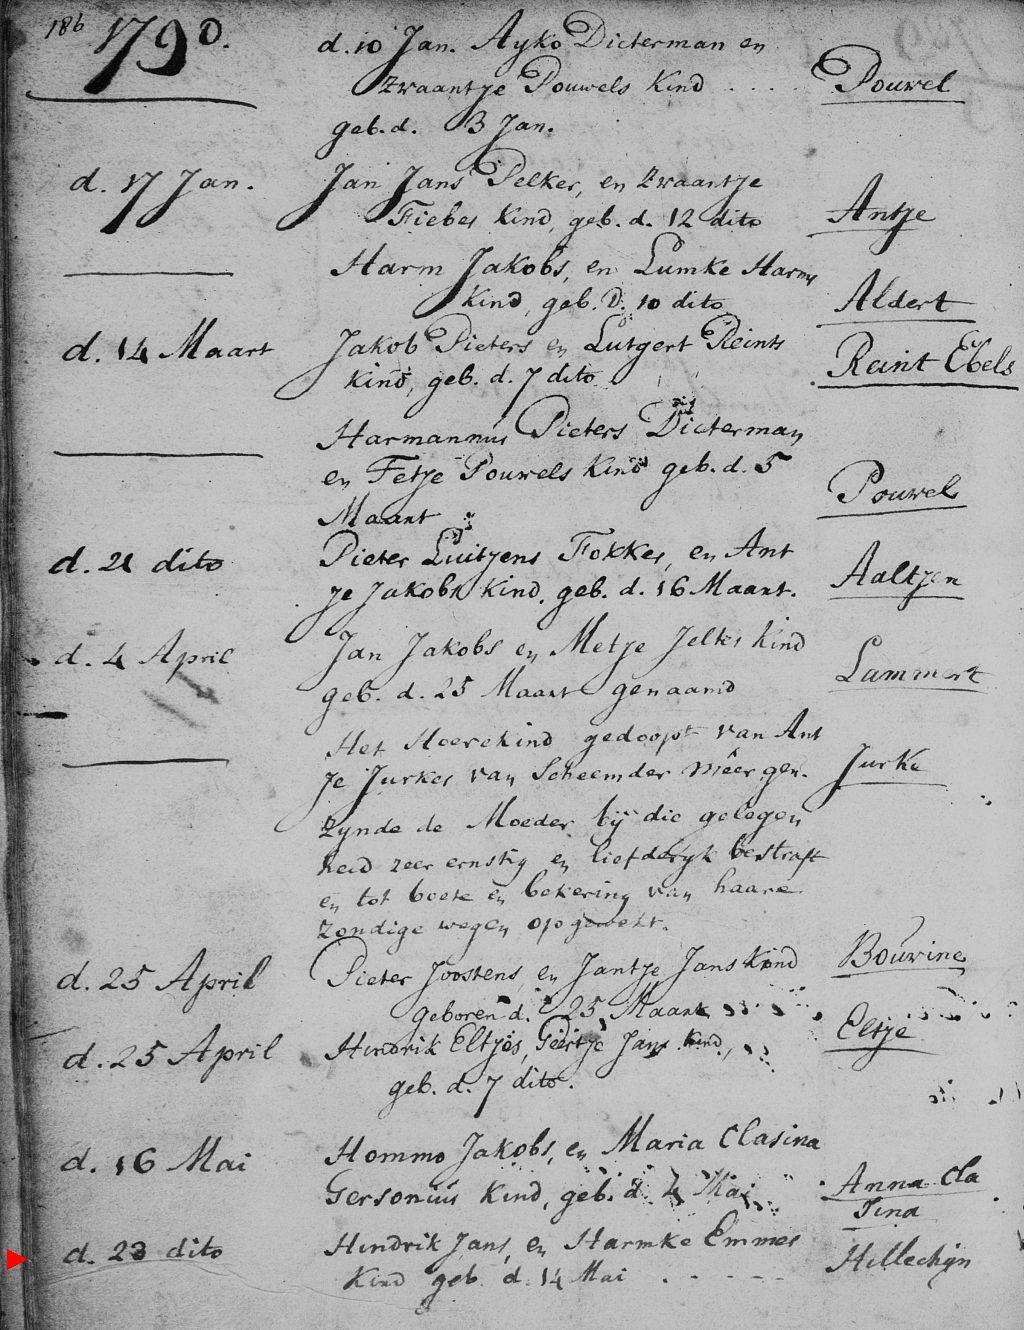 186
1790.
d. 10 Jan. Ayko Dieterman en
Zwaantje Pouwels Kind . . . . Pouwel
geb. d. 3 Jan.
d. 17 Jan. Jan Jans Pelker, en Zwaantje
Fiebes Kind, geb. d. 12 dito Antje
Harm Jakobs, en Lumke Harms
Kind, geb. d. 10 dito Aldert
d. 14 Maart Jakob Pieters en Lutgert Reints Reint Ebels
Kind, geb. d. 7 dito
Harmannus Pieters Dieterman
en Fetje Pouwels Kind geb. d. 5 Pouwel
Maart
d. 21 dito Pieter Luitjens Fokkes, en Ant
je Jakobs Kind, geb. d. 16 Maart. Aaltjen
d. 4 April Jan Jakobs en Metje Jeltes kind
geb. d. 25 Maart genaamd Lammert
Het Hoerekind gedoopt van Ant
je Jurkes van Scheemder meer gen. Jurke
zynde de Moeder bij die gelegen
heid zeer ernstig en liefderyk bestraft
en tot boete en bekering van haare
zondige wegen opgewekt.
d. 25 April Pieter Joostens, en Jantje Jans Kind Bouwine
geboren d. 25 Maart
d. 25 April Hindrik Eltjes, Geertje Jans Kind, Eltje
geb. d. 7 dito.
d. 16 Mai Hommo Jakobs, en Maria Clasina
Gersonius Kind, geb. d. 4 Mai Anna Cla
sina
d. 23 dito Hindrik Jans, en Harmke Emmes Hillechijn
Kind geb. d. 14 Mai . - - - -